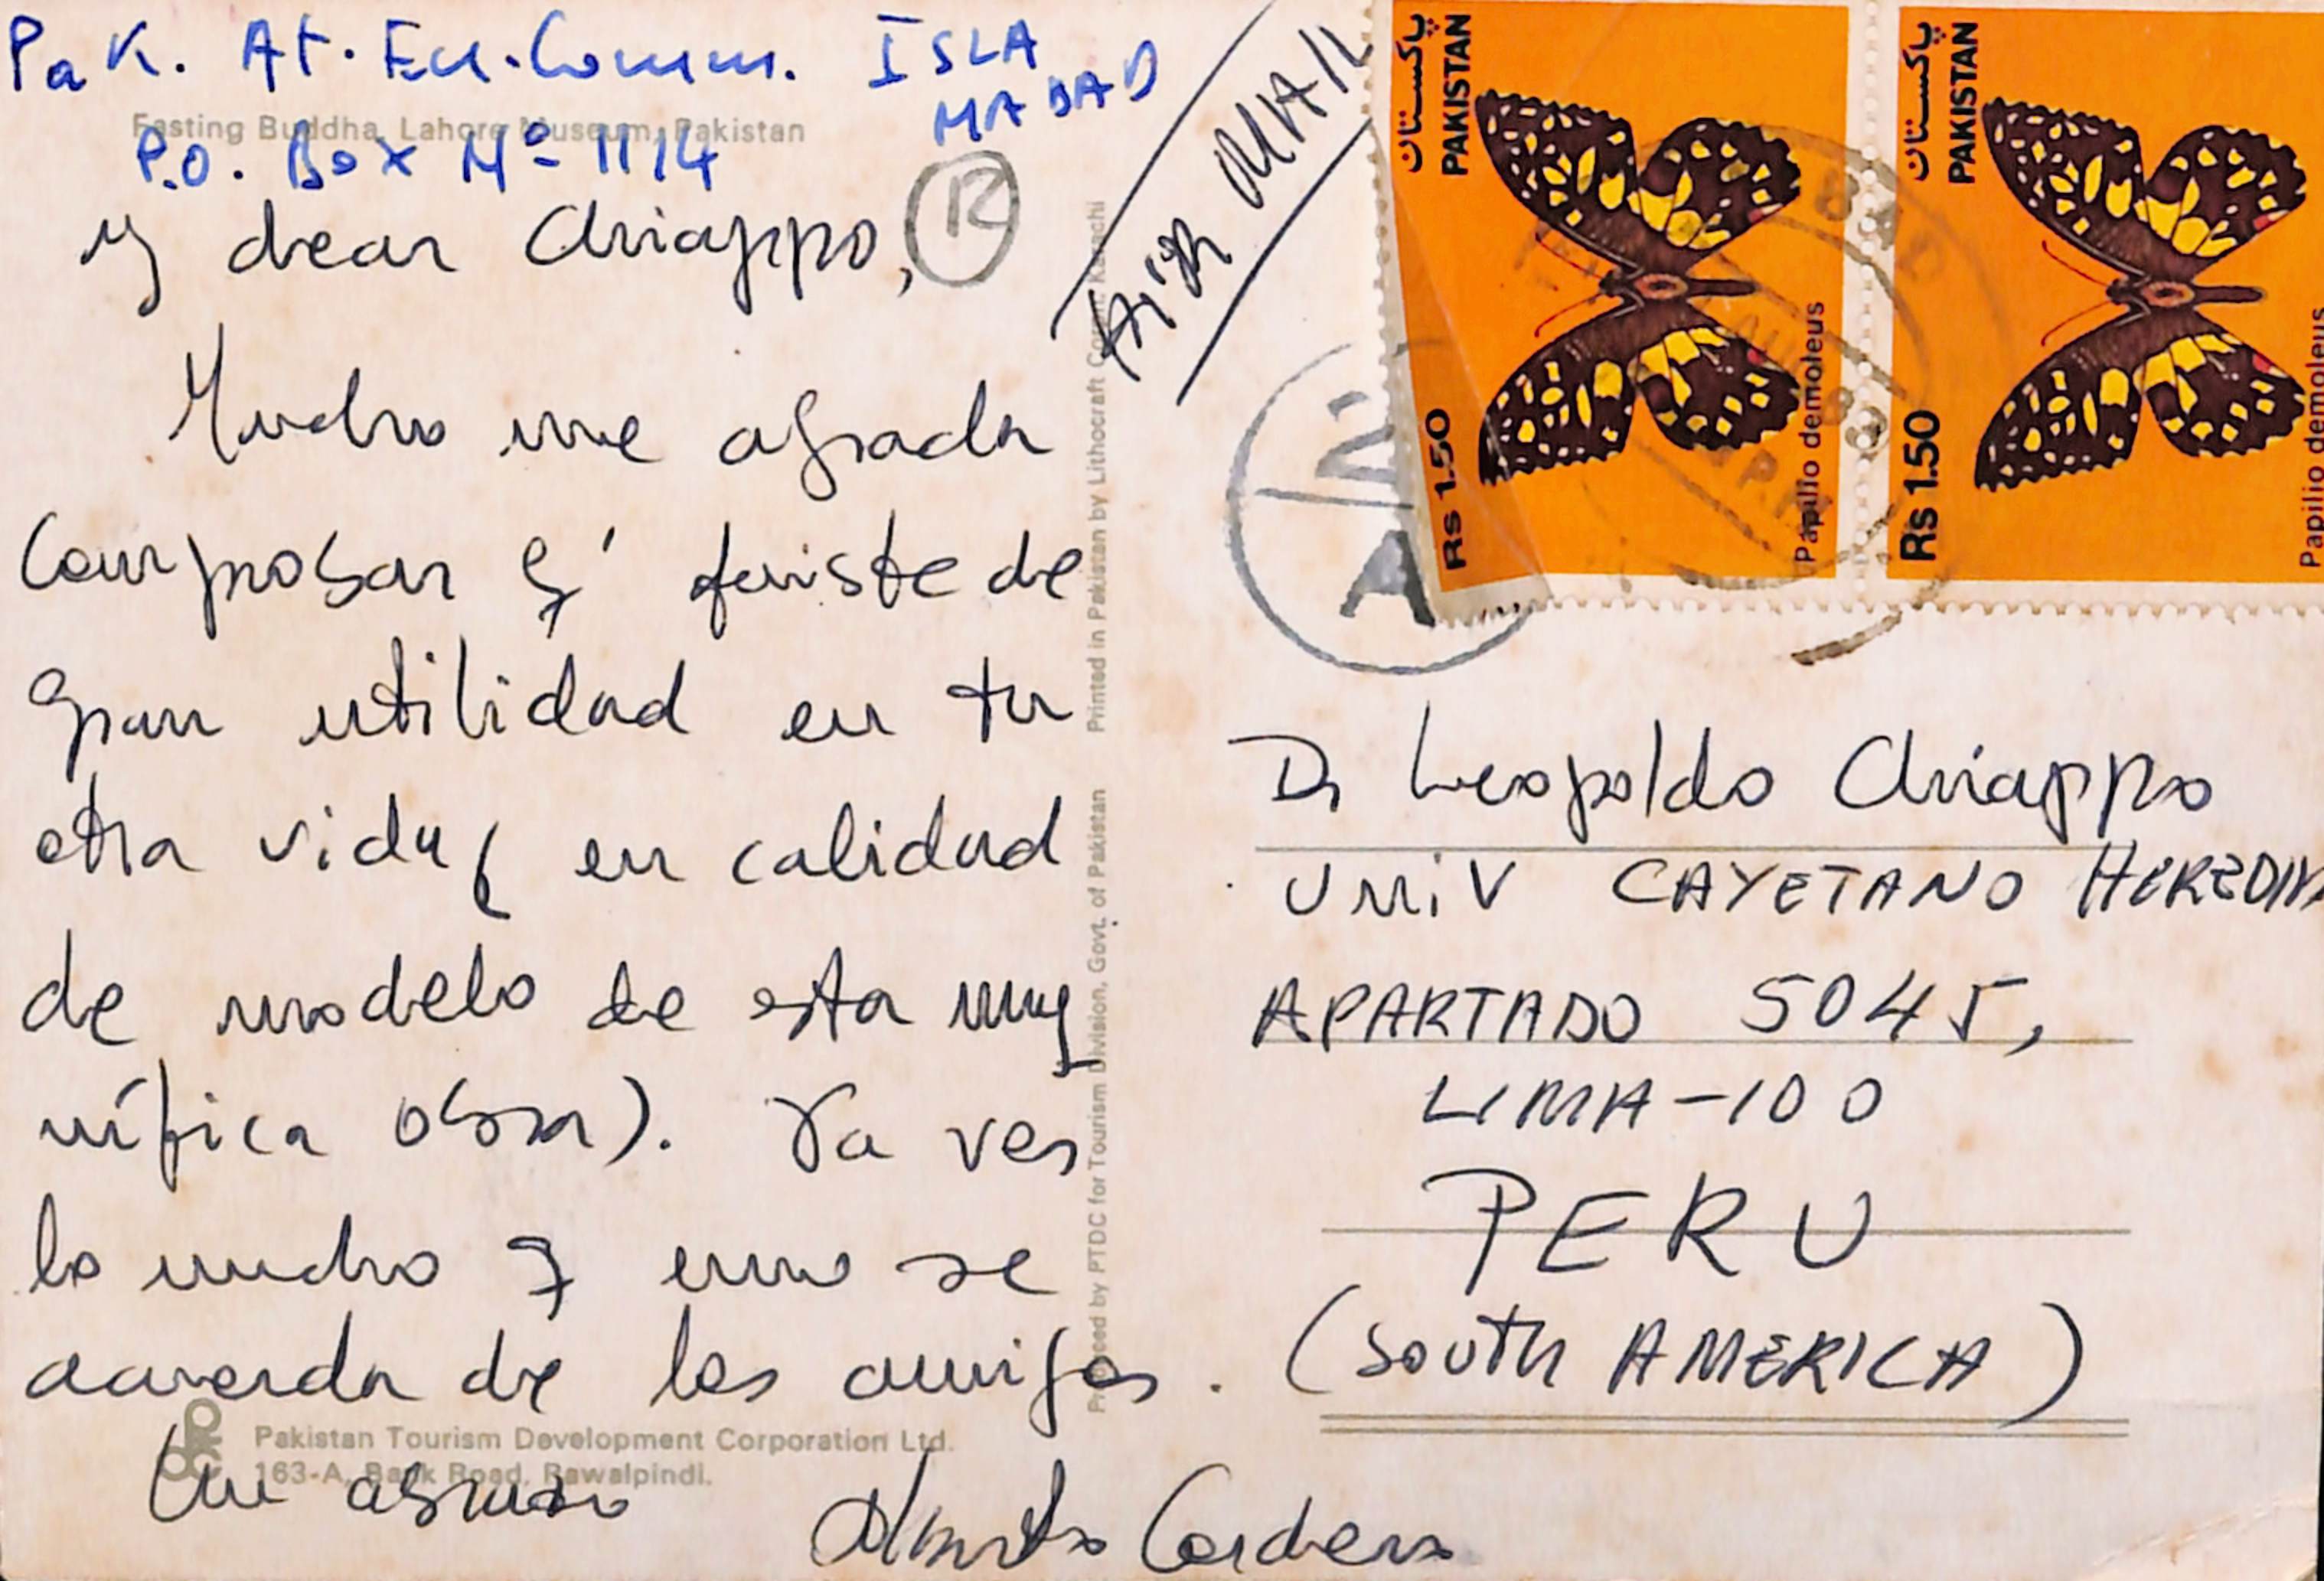 Pak. At. En. Comm. ISLA
MABAD
Fasting Buddha, Lahore Museum, Pakistan
P.O. Box Nº 1114
My dear Chiappo,
R
Mucho me agrada
comprobar q' fuiste de
gran utilidad en tu
otra vida ( en calidad
de modelo de esta mag
nífica obra). Ya ves
lo mucho q uno se
acuerda de los amigos.
Un abrazo
Alberto Cordero
Pakistan Tourism Development Corporation Ltd.
163-A, Bank Road, Rawalpindi.
Produced by PTDC for Tourism Division, Govt. of Pakistan Printed in Pakistan by Lithocraft Karachi
AIR MAIL
پاکستان
PAKISTAN
Rs 1.50
Papilio demoleus
پاکستان
PAKISTAN
Rs 1.50
Papilio demoleus
2
A
Dr Leopoldo Chiappo
UNIV CAYETANO HEREDIA
APARTADO 5045,
LIMA-100
PERU
(SOUTH AMERICA)